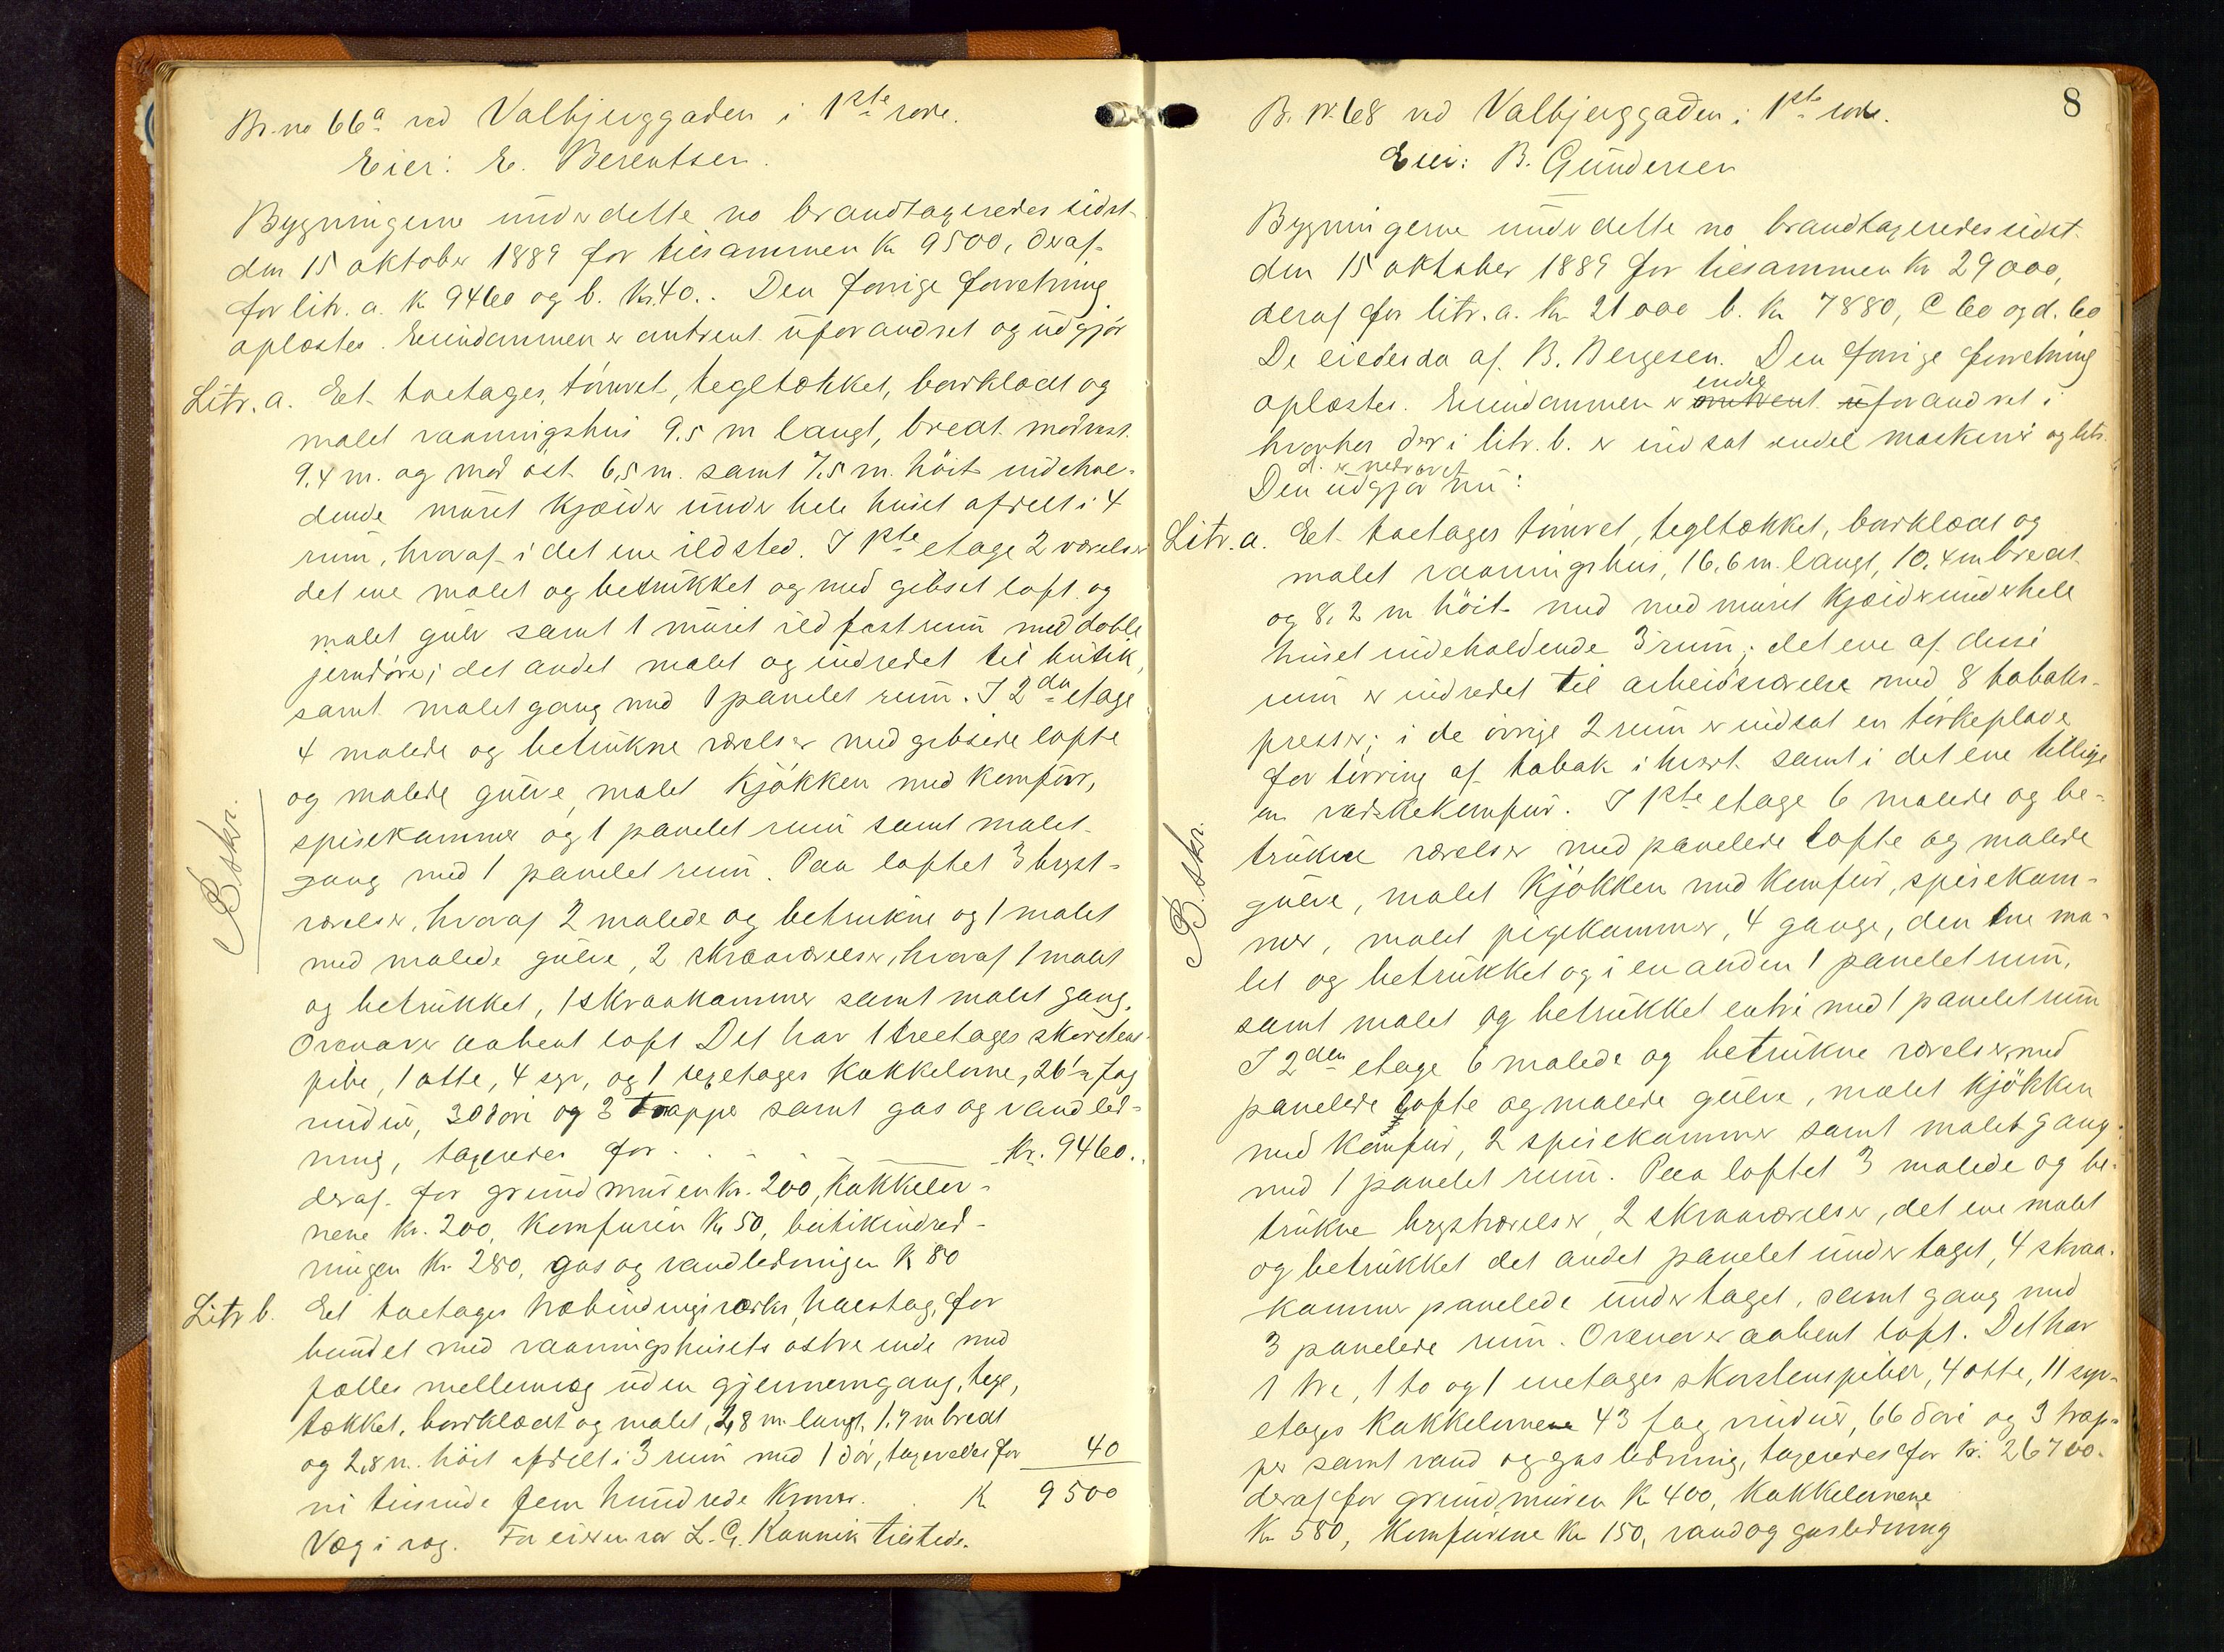 Br. no 66a ved Valbjerggaden i 1ste rode.
Eier: E. Berentsen.
Bygningerne under dette no brandtaxeredes sidst
den 15 oktober 1889 for tilsammen Kr 9500, deraf
for litr. a. Kr 9460 og b. Kr. 40.. Den forrige forretning
oplæstes. Eiendommen er omtrent uforandret og udgjør
Litr. a. Et toetages, tømret, tegltækket, bordklædt og
malet vaaningshus 9.5 m langt, bredt mod vest
9,4 m. og mod øst 6,5 m. samt 7,5 m. höit indehol-
dende muret kjælder under hele huset afdelt i 4
rum, hvoraf i det ene ildsted. I 1ste etage 2 værelser
det ene malet og betrukket og med gibset loft og
malet gulv samt 1 muret ildfast rum med doble
jerndøre; det andet malet og indredet til butik,
samt malet gang med 1 panelet rum. I 2den etage
4 malede og betrukne værelser med gibsede lofte
og malede gulve, malet kjökken med komfur,
spisekammer og 1 panelet rum samt malet
gang med 1 panelet rum. Paa loftet 3 kvist-
værelser, hvoraf 2 malede og betrukne og 1 malet
med malede gulve, 2 skraaværelser, hvoraf 1 malet
og betrukket, 1 skraakammer samt malet gang.
Ovenover aabent loft Det har 1 treetages skorstens-
pibe, 1 otte, 4 syv, og 1 sexetages kakkelovne, 26 1/2 fag
vinduer, 30 døre og 3 trapper samt gas og vandled-
ning, taxeredes for . . . . Kr. 9460..
deraf for grundmuren Kr. 200, Kakkelov-
nene Kr. 200, Komfuren Kr 50, butikindred-
ningen Kr. 280, gas og vandledningen Kr 80
Litr b. Et toetages træbindingsværks, halvtag, for
bundet med vaaningshusets østre ende med
fælles mellemvæg uden gjennemgang, tegl,
tækket, bordklædt og malet, 2,8 m. langt, 1.7 m bredt
og 2,8 m. höit afdelt i 3 rum med 1 dör, taxeredes for 40
ni tusinde fem hundrede Kroner. . Kr 9500
Væg i væg. For eieren var L. G. Kannik tilstede.
B. skr.
8
B. No 68 ved Valbjerggaden i 1ste rode.
Eier: B. Gundersen
Bygningerne under dette no brandtaxeredes sidst
den 15 oktober 1889 for tilsammen Kr 29000,
deraf for litr. a. Kr 21000 b. Kr 7880, c 60 og d. 60
De eiedes da af B. Bergesen. Den forrige forretning
endel
oplæstes. Eiendommen er omtrent uforandret i
hvorhos der i litr. b. er indsat endel maskiner og litr.
d. er nedrevet
Den udgjør nu:
Litr. a. Et toetages tømret, tegltækket, bordklædt og
malet vaaningshus, 16,6 m. langt, 10,4 m bredt
og 8,2 m höit med med muret kjælder under hele
huset indeholdende 3 rum; det ene af disse
rum er indredet til arbeidsværelse med 8 tobaks-
presser; i de övrige 2 rum er indsat en tørkeplade
for törring af tobak i hvert samt i det ene tillige
en vaskekomfur. I 1ste etage 6 malede og be-
trukne værelser med panelede lofte og malede
gulve, malet kjökken med komfur, spisekam-
mer, malet pigekammer, 4 gange, den ene ma-
let og betrukket og i en anden 1 panelet rum,
samt malet og betrukket entre med 1 panelet rum
I 2den etage 6 malede og betrukne værelser, med
panelede lofte og malede gulve, malet kjökken
med komfur, 2 spisekammer samt malet gang
med 1 panelet rum. Paa loftet 3 malede og be-
trukne kvistværelser, 2 skraaværelser, det ene malet
og betrukket det andet panelet under taget, 4 skraa-
kammer panelede under taget, samt gang med
3 panelede rum. Ovenover aabent loft. Det har
1 tre, 1 to og 1 enetages skorstenspiber, 4 otte, 11 syv-
etages kakkelovne 43 fag vinduer, 66 döre og 3 trap-
per samt vand og gasledning, taxeredes for Kr. 26700.
deraf for grundmuren Kr 400, Kakkelovnene
Kr 580, Komfurene Kr 150, vand og gasledning
B. skr.